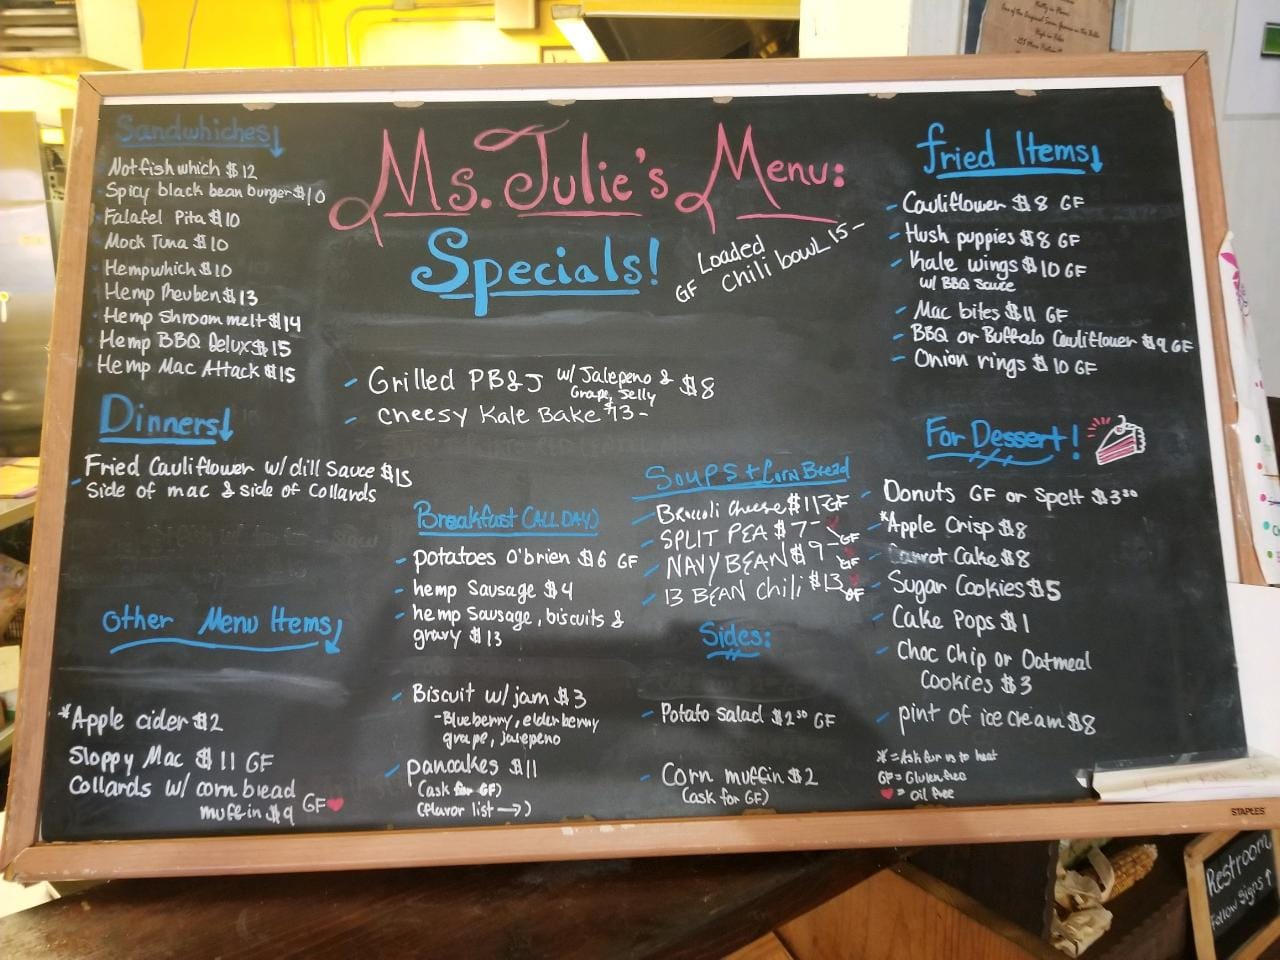 Sandwhiches
Notfishwhich $12
Spicy black bean burger $10
Falafel Pita $10
Mock Tuna $10
Hempwhich $10
Hemp Rheuben $13
Hemp Shroom melt $14
Hemp BBQ Delux $15
Hemp Mac Attack $15
Dinners
Fried Cauliflower w/ dill Sauce $15
Side of mac & side of Collards
Other Menu Items
*Apple cider $2
Sloppy Mac $11 GF
Collards w/ corn bread
muffin $9 GF ♥
Ms. Julie's Menu:
Specials!
Loaded
GF Chili bowl 15-
- Grilled PB&J w/ Jalepeno & $8
Grape Jelly
- Cheesy Kale Bake $13-
Breakfast (ALL DAY)
- potatoes O'brien $6 GF
- hemp Sausage $4
- hemp Sausage, biscuits &
gravy $13
- Biscuit w/ jam $3
-Blueberry, elderberry
grape, jalepeno
- pancakes $11
(ask for GF)
(flavor list →)
Soups + Corn Bread
- Broccoli Cheese $11- GF
- SPLIT PEA $7- ♥ GF
- NAVY BEAN $9- ♥ GF
- 13 BEAN Chili $13 ♥ GF
Sides:
- Potato salad $2.50 GF
- Corn muffin $2
(ask for GF)
fried Items
- Cauliflower $8 GF
- Hush puppies $8 GF
- Kale wings $10 GF
w/ BBQ sauce
- Mac bites $11 GF
- BBQ or Buffalo Cauliflower $9 GF
- Onion rings $10 GF
For Dessert!
- Donuts GF or Spelt $3.00
*Apple Crisp $8
- Carrot Cake $8
- Sugar Cookies $5
- Cake Pops $1
- Choc Chip or Oatmeal
Cookies $3
- pint of ice cream $8
* = Ask for us to heat
GF = Gluten free
♥ = Oil free
STAPLES
Restroom
Follow Signs ↑